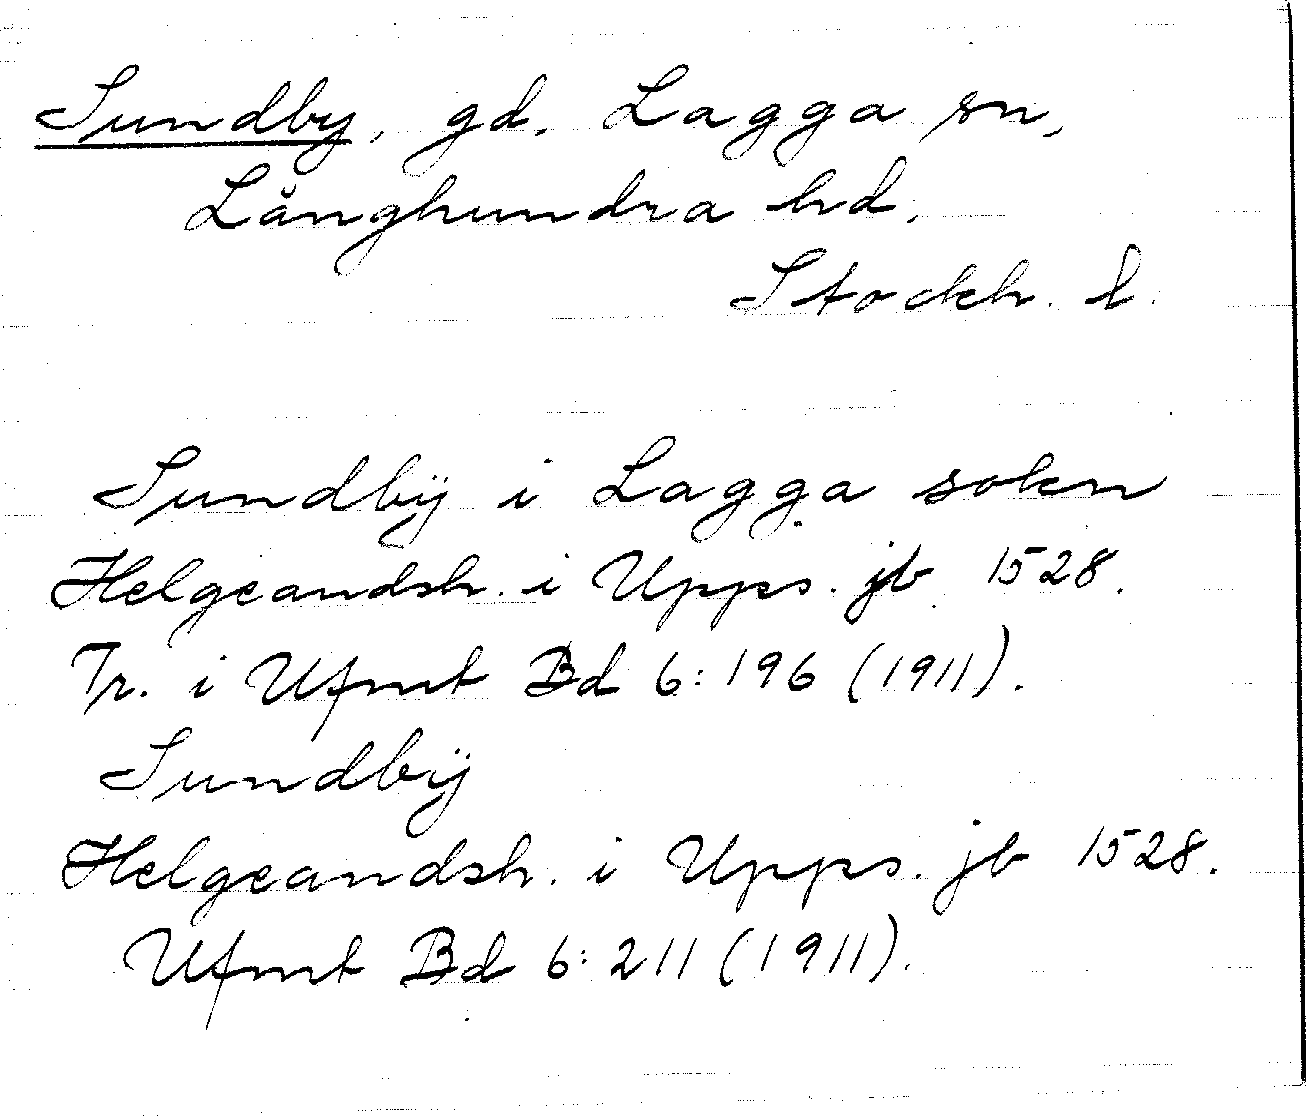 Sundby, gd, Lagga sn,
Långhundra hd,
Stockh. l.
Sundbÿ i Lagga sokn
Helgeandsh. i Upps. jb 1528.
Tr. i Ufmt Bd 6:196 (1911).
Sundbÿ
Helgeandsh. i Upps. jb 1528.
Ufmt Bd 6:211 (1911).